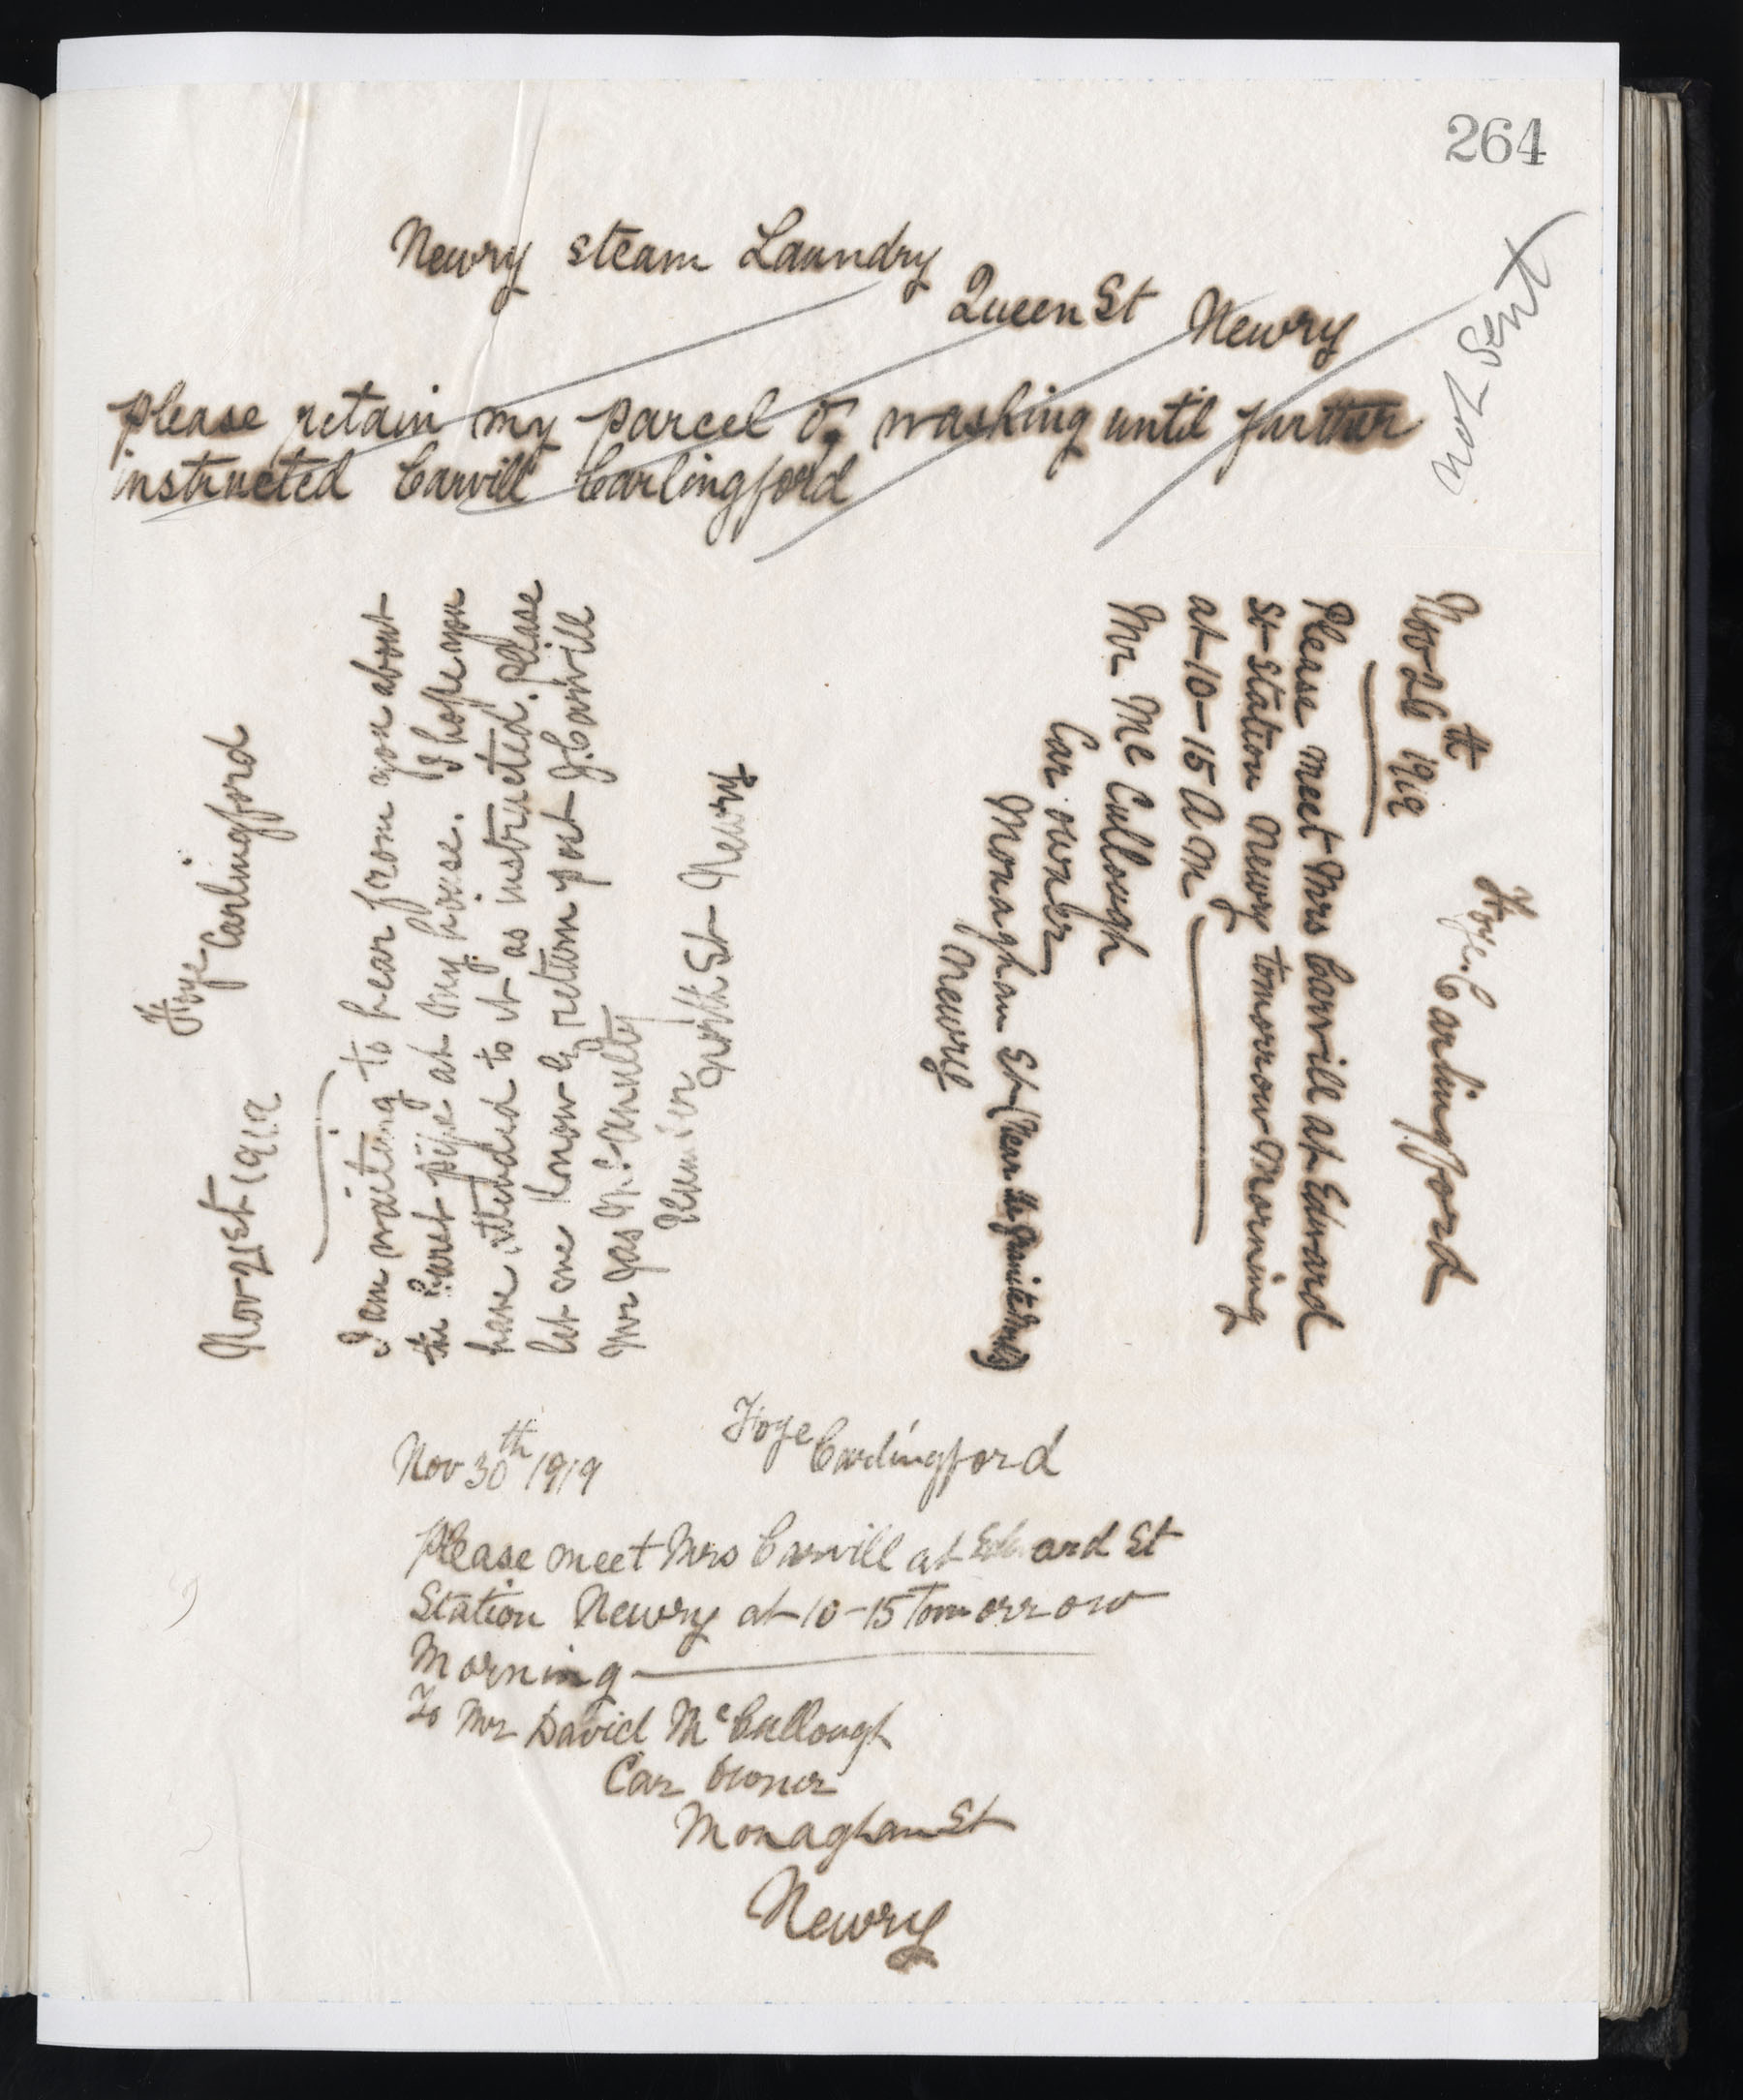 264
Newry steam Laundry
Queen St Newry
not sent
please retain my parcel of washing until further
instructed Carvill Carlingford
Foye Carlingford
Nov 21st 1919
I am waiting to hear from you about
the burst pipe at my house. I hope you
have attended to it as instructed. Please
let me know by return post J. Carvill
Mr Jas McAnulty
North St Newry
Nov 26th 1919
Foye. Carlingford
Please meet Mrs Carvill at Edward
St Station Newry tomorrow Morning
at 10-15 A M
Mr Mc Cullough
Car owner
Monaghan St (Near the Granite Works)
Newry
Nov 30th 1919
Foye Carlingford
Please meet Mrs Carvill at Edward St
Station Newry at 10-15 Tomorrow
Morning
To Mr David McCullough
Car Owner
Monaghan St
Newry